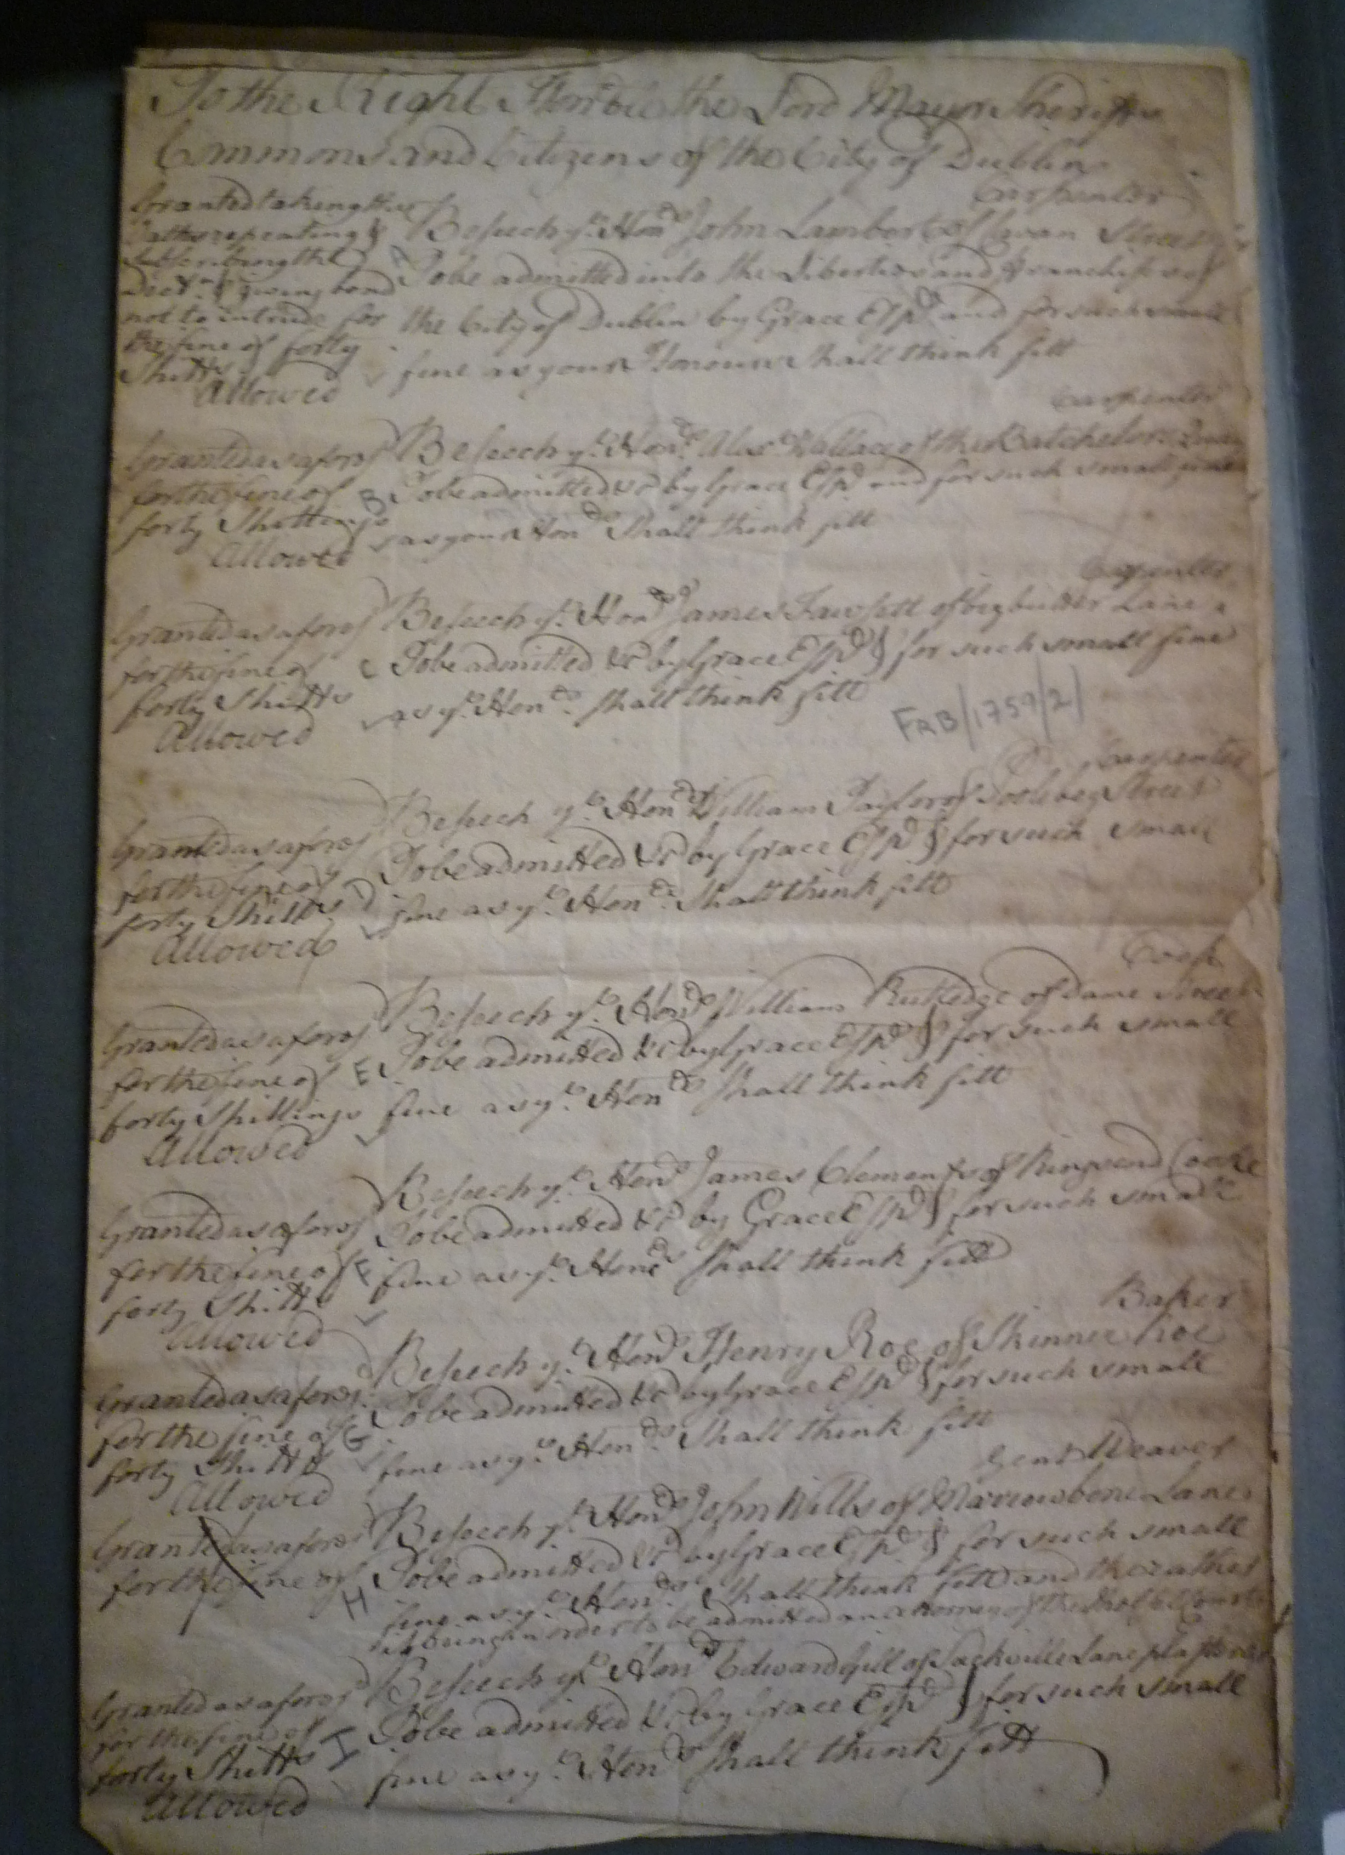 To the Right Honble the Lord Mayor Sheriffs
Commons and Citizens of the City of Dublin
Carpenter
Granted taking the
Oaths repeating &
subscribing the
Decln & giving bond
not to intrude for
the fine of forty
Shills
Allowed
Beseech yr Honrs John Lambert of Cavan Street
A To be admitted into the Liberties and Franchises of
the City of Dublin by Grace Espl and for such small
fine as your Honours shall think fitt
Carpenter
Granted as aforesd
for the fine of
forty Shillings
Allowed
Beseech yr Honrs Alexr Wallace of the Batchelors Quay
B To be admitted &c by Grace Espl and for such small fine
as your Honrs Shall think fitt
Carpenter
Granted as aforesd
for the fine of
forty Shills
Allowed
Beseech yr Honrs James Fawsett of big butter Lane
C To be admitted &c by Grace Espl & for such small fine
as yr Honrs shall think fitt
FRB/1759/2/
Carpenter
Granted as aforesd
for the fine of
forty Shills
Allowed
Beseech yr Honrs William Taylor of Poolebeg Street
D To be admitted &c by Grace Espl & for such small
fine as yr Honrs Shall think fitt
Cooper
Granted as aforesd
for the fine of
forty Shillings
Allowed
Beseech yr Honrs William Rutledge of Dame Street
E To be admitted &c by Grace Espl & for such small
fine as yr Honrs shall think fitt
Granted as aforesd
for the fine of
forty Shills
Allowed
Beseech yr Honrs James Clements of Ringsend Cooke
F To be admitted &c by Grace Espl & for such small
fine as yr Honrs shall think fitt
Baker
Granted as aforesd
for the fine of
forty Shills
Allowed
Beseech yr Honrs Henry Roe of Skinner Roe
G To be admitted &c by Grace Espl & for such small
fine as yr Honrs Shall think fitt
Gent Weaver
Granted as aforesd
for the fine of
Beseech yr Honrs John Wills of Marrowbone Lane
H To be admitted &c by Grace Espl & for such small
fine as yr Honrs Shall think fitt and the rather
it being in order to be admitted an Attorney of the Courts
Granted as aforesd
for the fine of
forty Shills
Allowed
Beseech yr Honrs Edward Gill of Sackville Lane plasterer
I To be admitted &c by Grace Espl & for such small
fine as yr Honrs shall think fitt